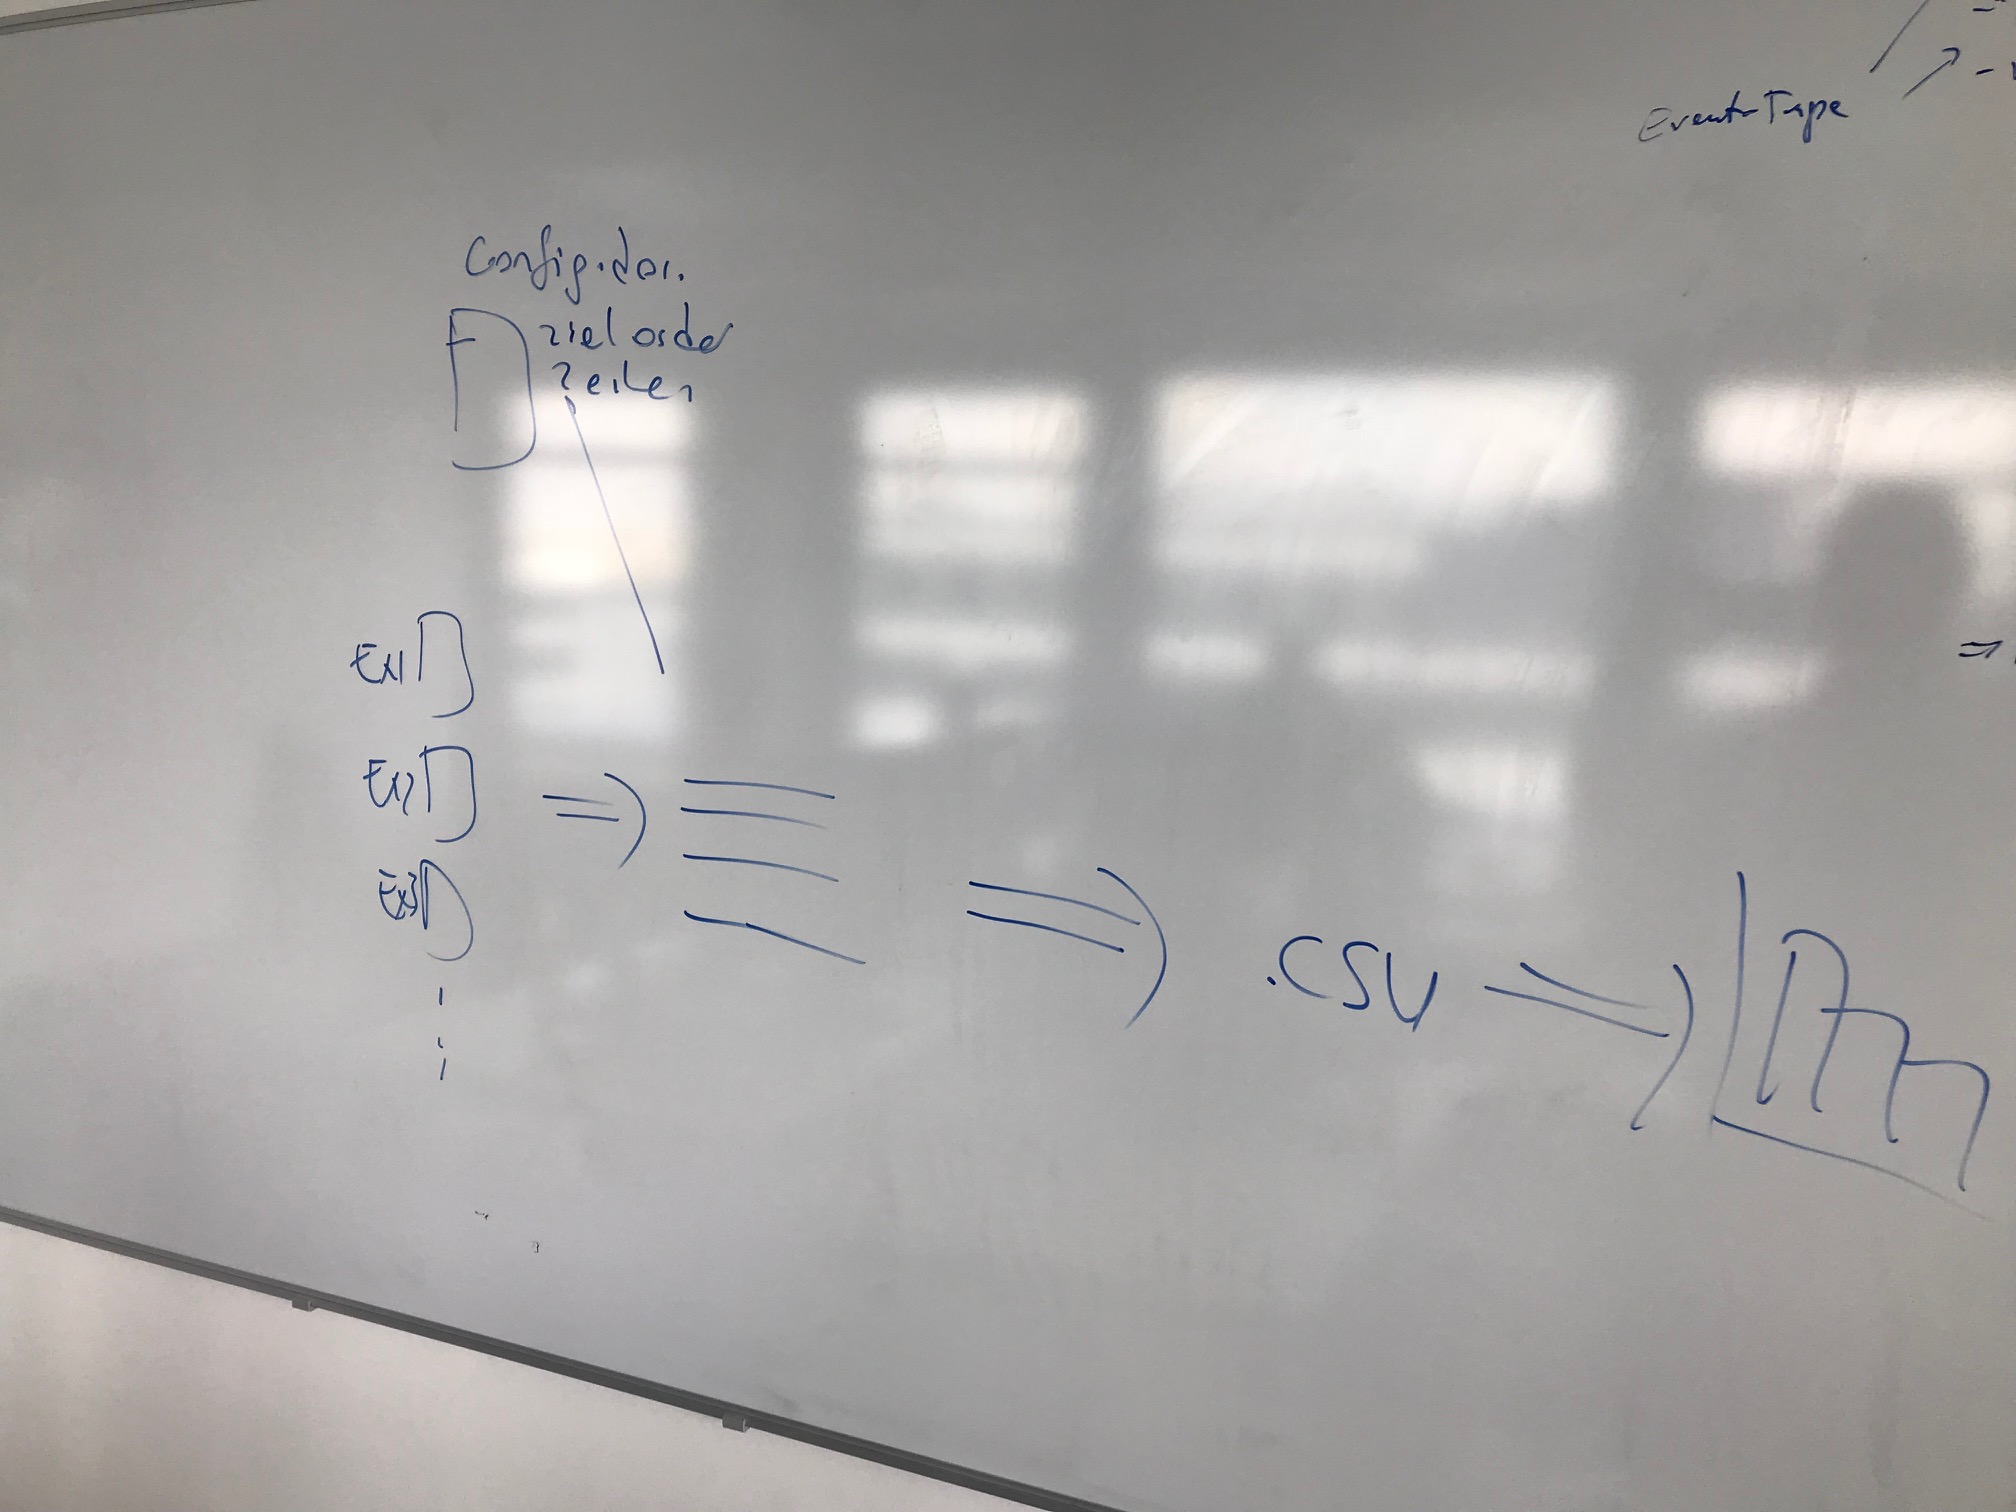 Event-Type
Config.dat.
zielorder
Zeiten
Ex1
Ex2
Ex3
.CSV